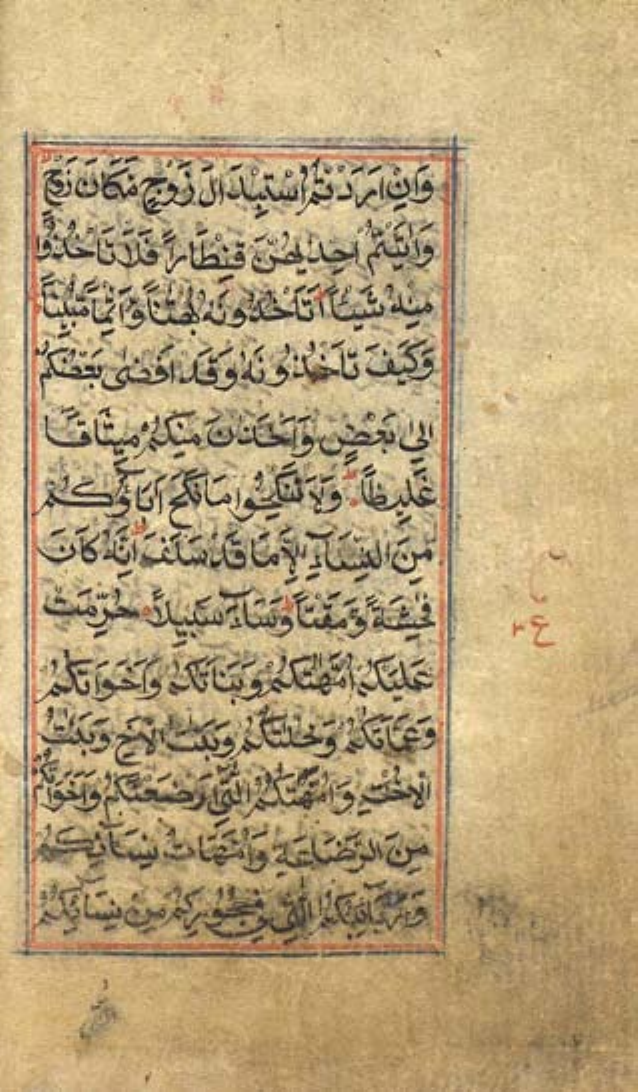 وَاِنْ اَرَدْتُمُ اسْتِبْدَالَ زَوْجٍ مَكَانَ زَوْجٍ
وَاٰتَيْتُمْ اِحْدٰيهُنَّ قِنْطَاراً فَلَا تَاْخُذُوْا
مِنْهُ شَيْئاً اَتَاْخُذُوْنَهُ بُهْتَاناً وَاِثْماً مُبِيْناً
وَكَيْفَ تَاْخُذُوْنَهُ وَقَدْ اَفْضٰى بَعْضُكُمْ
اِلٰى بَعْضٍ وَاَخَذْنَ مِنْكُمْ مِيْثَاقًا
غَلِيْظاً وَلَا تَنْكِحُوْا مَا نَكَحَ اٰبَاؤُكُمْ
مِنَ النِّسَآءِ اِلَّا مَا قَدْ سَلَفَ اِنَّهُ كَانَ
فٰحِشَةً وَّمَقْتًا وَسَآءَ سَبِيْلًا حُرِّمَتْ
عَلَيْكُمْ اُمَّهٰتُكُمْ وَبَنَاتُكُمْ وَاَخَوَاتُكُمْ
وَعَمَّاتُكُمْ وَخٰلٰتُكُمْ وَبَنٰتُ الْاَخِ وَبَنٰتُ
الْاُخْتِ وَاُمَّهٰتُكُمُ الّٰتِيْ اَرْضَعْنَكُمْ وَاَخَوَاتُكُمْ
مِنَ الرَّضَاعَةِ وَاُمَّهَاتُ نِسَآئِكُمْ
وَرَبَآئِبُكُمُ الّٰتِيْ فِيْ حُجُوْرِكُمْ مِنْ نِسَآئِكُمُ
ع